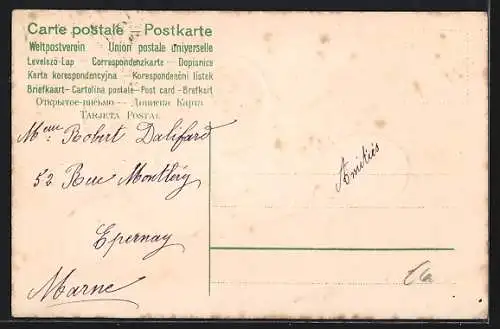 Carte postale — Postkarte
Weltpostverein — Union postale universelle
Levelező-Lap — Correspondenzkarte — Dopisnice
Karta korespondencyjna — Korespondenční lístek
Briefkaart — Cartolina postale — Post card — Brefkort
Открытое письмо — Дописна Карта
TARJETA POSTAL
Mme Robert Dalifard
52 Rue Montléry
Epernay
Marne
Amitiés